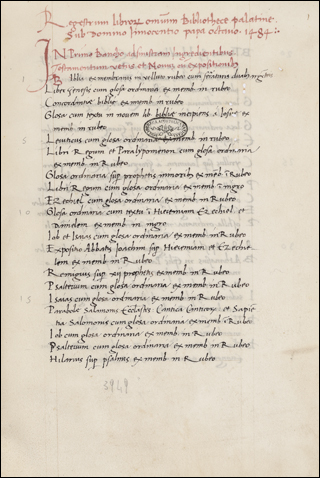 Regestrum librorum omnium Bibliothece palatine
sub Domino Innocentio papa octavo. 1484.
IN Primo Bancho ad sinistram Ingredientibus
Testamentum vetus et Novum cu expositionibus
Biblia ex membranis in velluto rubeo cum
Liber Genesis cum glosa ordinaria ex memb in rubeo
Concordantie biblie ex memb in rubeo
Glosa cum textu in novem lib biblie incipiens a Iosue ex
memb in rubeo
Leviticus cum glosa ordinaria in rubeo
Libri Regum et Paralypomenon cum glosa ordinaria
ex memb in Rubeo
Glosa ordinaria sup prophetis minoribus ex memb i Rubeo
Libri Regum cum glosa ordinaria ex memb i nigro
Ezechiel cum glosa ordinaria ex memb in Rubeo
Glosa ordinaria cum textu i Hieremiam Ezechiel et
Danielem ex memb in nigro
Iob et Isaias cum glosa ordinaria ex memb in Rubeo
Expositio Abbatis Joachim sup Hieremiam et Ezechie
lem ex memb in Rubeo
Remigius sup xij prophetis ex memb in Rubeo
Psalterium cum glosa ordinaria ex memb in Rubeo
Isaias cum glosa ordinaria ex memb in Rubeo
Parabole Salamonis Ecclesiastes Cantica Canticorum et Sapien
tia Salomonis cum glosa ordinaria ex memb i Rubeo
Iob cum glosa ordinaria ex memb in Rubeo
Psalterium cum glosa ordinaria ex memb in Rubeo
Hilarius sup psalmis ex memb in Rubeo
3949